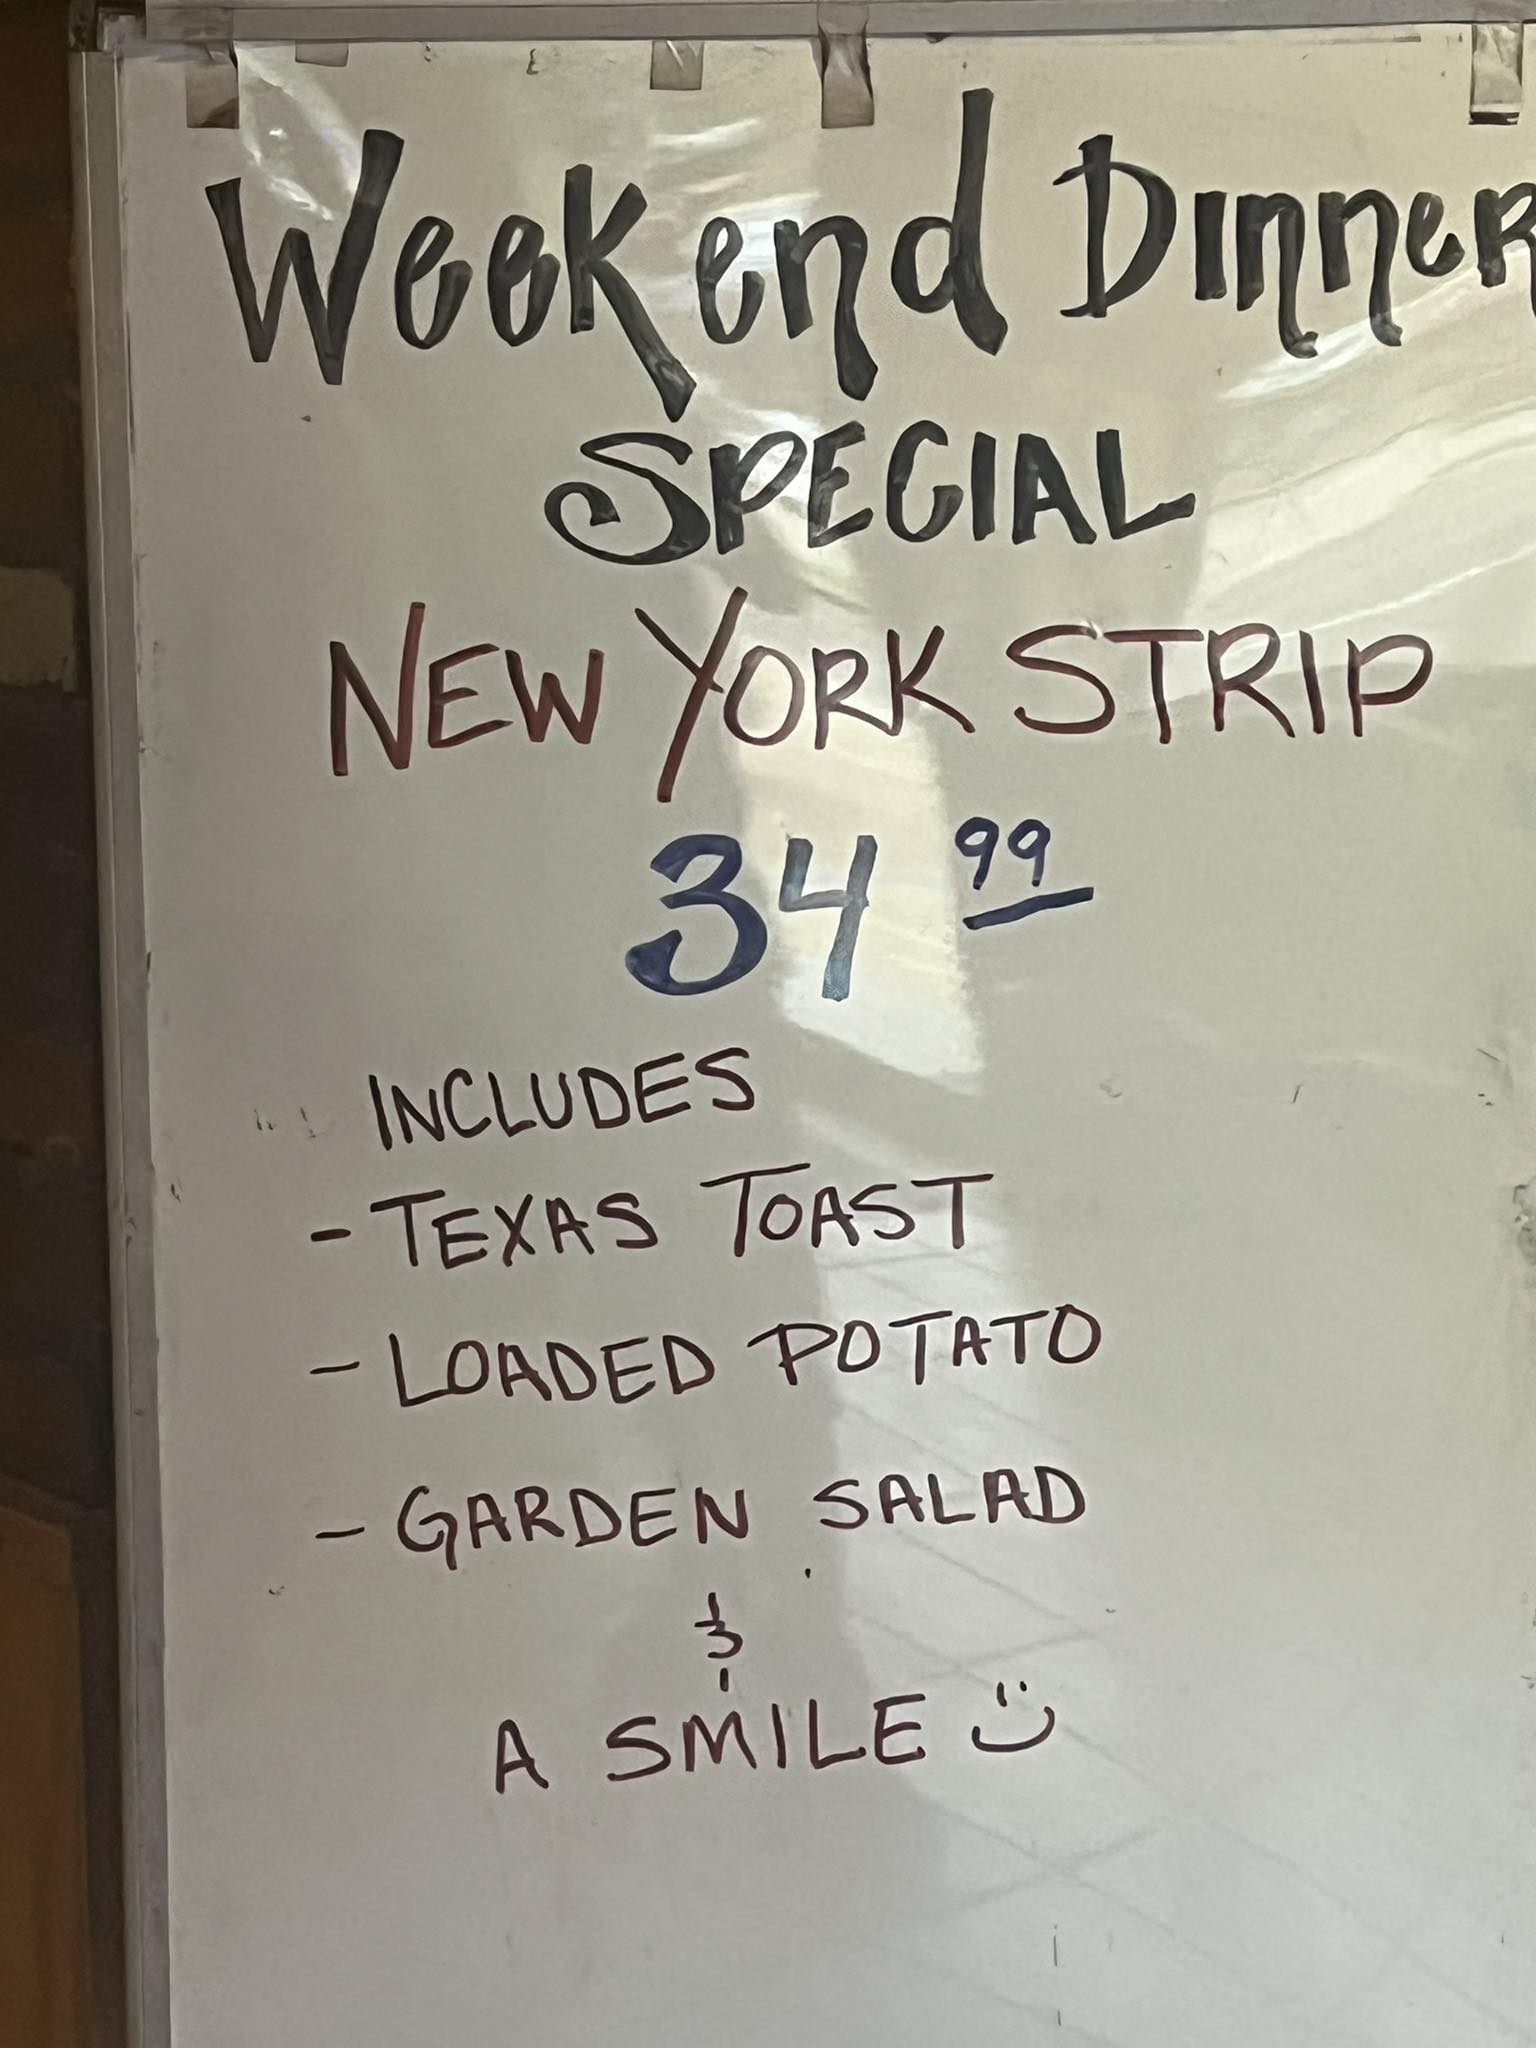 Weekend Dinner
SPECIAL
NEW YORK STRIP
34 99
INCLUDES
- TEXAS TOAST
- LOADED POTATO
- GARDEN SALAD
&
A SMILE :)